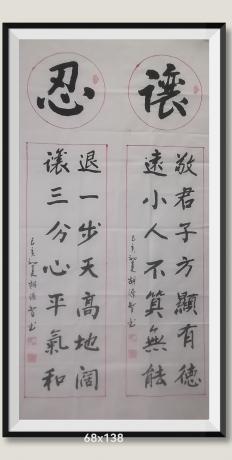 讓
敬君子方顯有德
遠小人不算無能
己亥
忍
退一步天高地闊
讓三分心平氣和
己亥
68x138